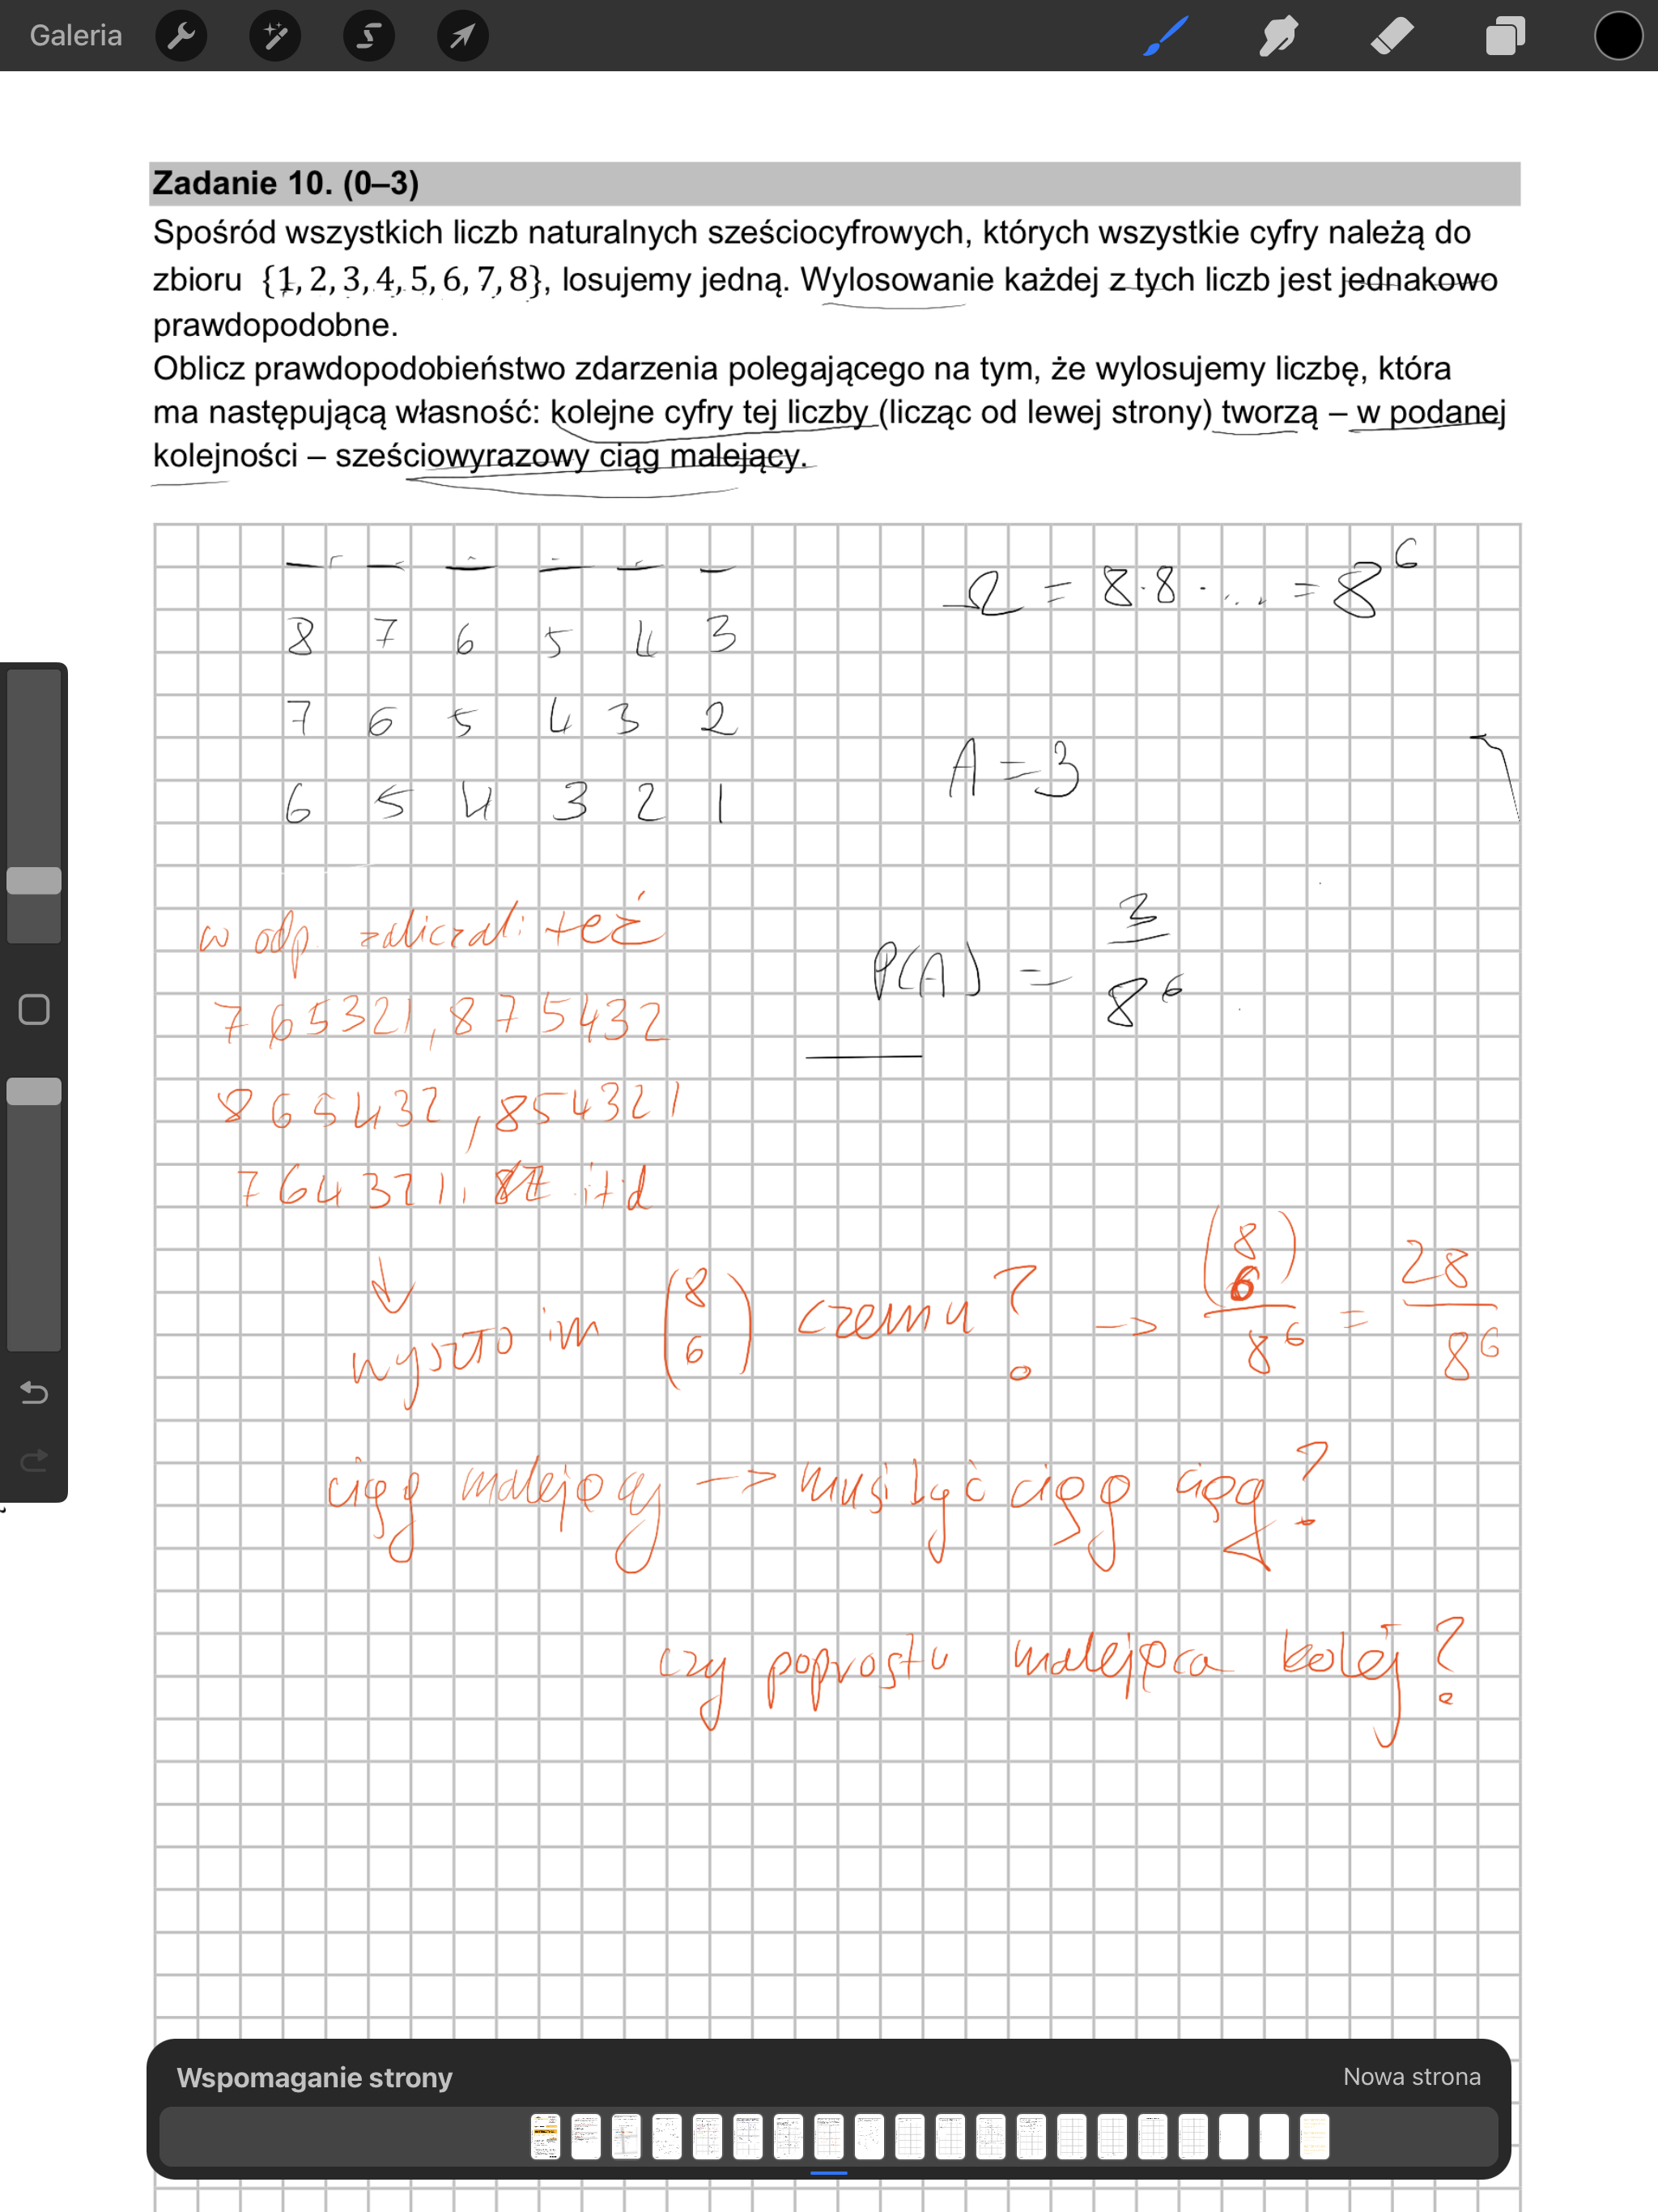 Galeria
Zadanie 10. (0–3)
Spośród wszystkich liczb naturalnych sześciocyfrowych, których wszystkie cyfry należą do
zbioru {1, 2, 3, 4, 5, 6, 7, 8}, losujemy jedną. Wylosowanie każdej z tych liczb jest jednakowo
prawdopodobne.
Oblicz prawdopodobieństwo zdarzenia polegającego na tym, że wylosujemy liczbę, która
ma następującą własność: kolejne cyfry tej liczby (licząc od lewej strony) tworzą – w podanej
kolejności – sześciowyrazowy ciąg malejący.
Ω = 8·8·... = 8^6
8 7 6 5 4 3
7 6 5 4 3 2
A = 3
6 5 4 3 2 1
w odp. zaliczali też
P(A) = 3/8^6
765321, 875432
865432, 854321
764321, itd
↓
wyszło im (8 6) czemu? -> (8 6)/8^6 = 28/8^6
ciąg malejący -> musi być ciąg ciąg?
czy poprostu malejąca kolej?
Wspomaganie strony
Nowa strona